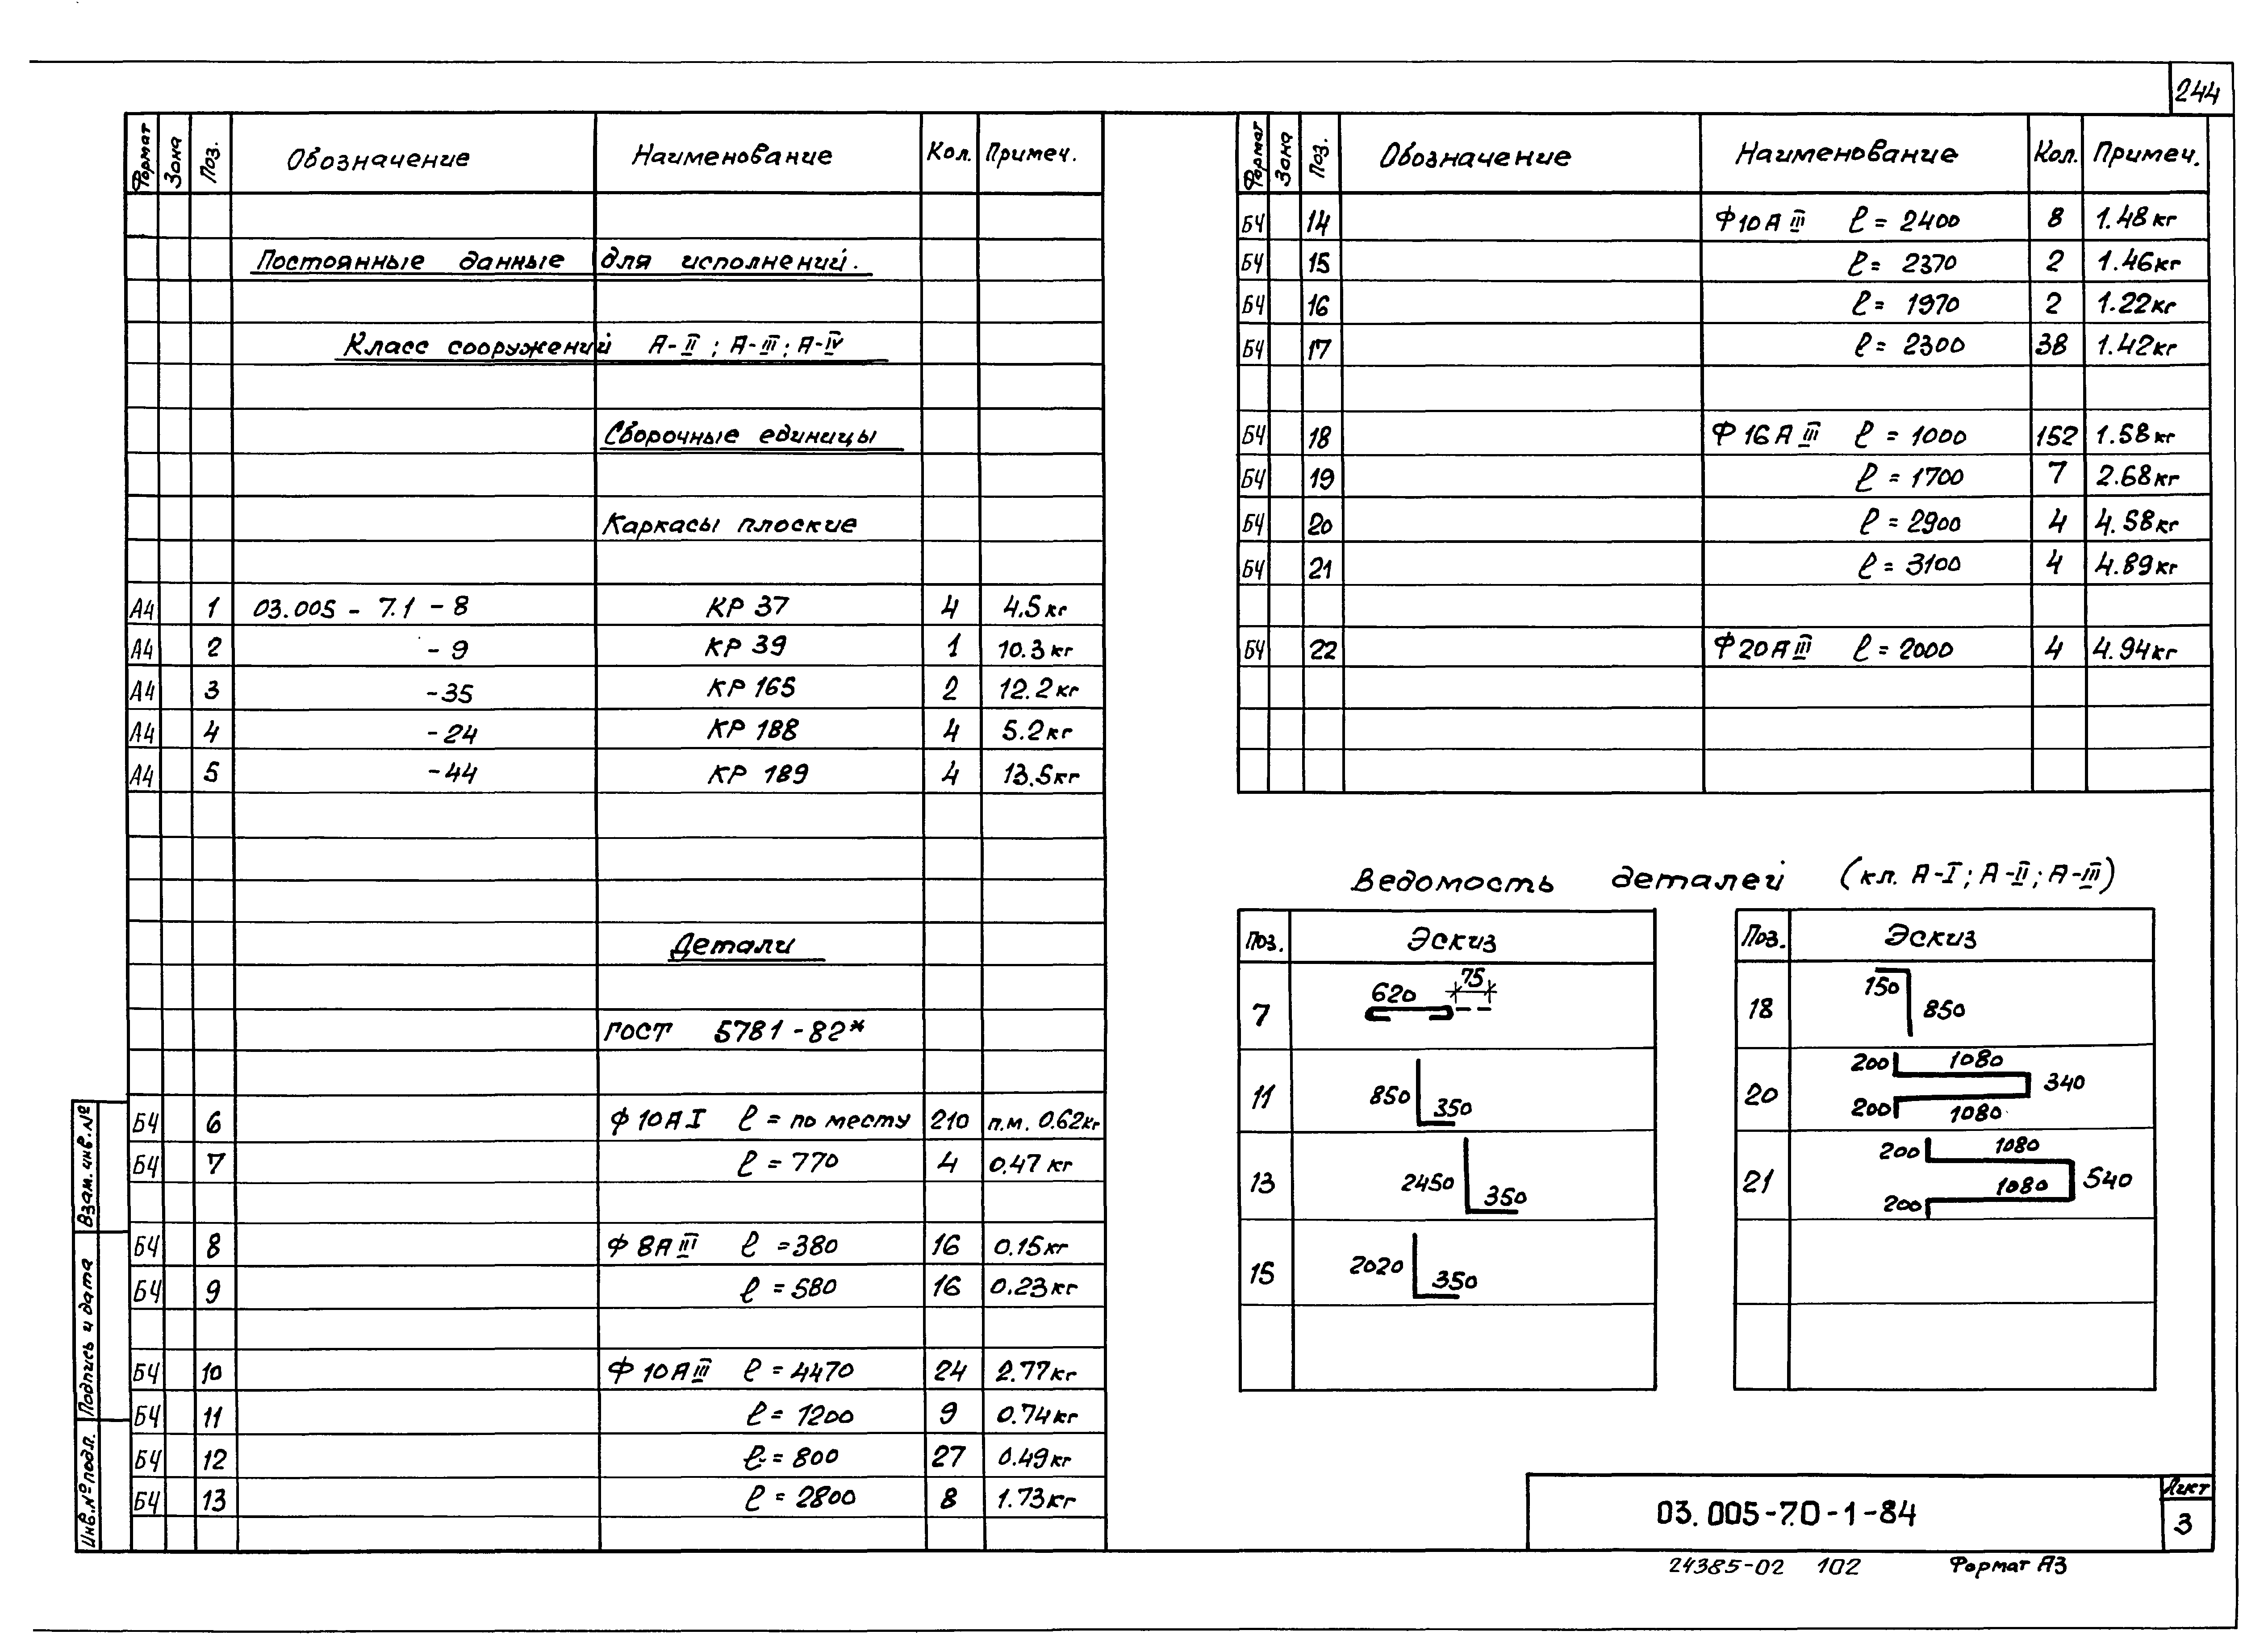 244
Формат Зона Поз. Обозначение Наименование Кол. Примеч.
Постоянные данные для исполнений.
Класс сооружений А-II; А-III; А-IV
Сборочные единицы
Каркасы плоские
А4 1 03.005 - 7.1 - 8 КР 37 4 4.5кг
А4 2 - 9 КР 39 1 10.3кг
А4 3 -35 КР 165 2 12.2кг
А4 4 -24 КР 188 4 5.2кг
А4 5 -44 КР 189 4 13.5кг
Детали
ГОСТ 5781-82*
БЧ 6 Ф10АI ℓ = по месту 210 п.м. 0.62кг
БЧ 7 ℓ = 770 4 0.47кг
БЧ 8 Ф8АIII ℓ =380 16 0.15кг
БЧ 9 ℓ = 580 16 0.23кг
БЧ 10 Ф10АIII ℓ = 4470 24 2.77кг
БЧ 11 ℓ = 1200 9 0.74кг
БЧ 12 ℓ = 800 27 0.49кг
БЧ 13 ℓ = 2800 8 1.73кг
Формат Зона Поз. Обозначение Наименование Кол. Примеч.
БЧ 14 Ф10АIII ℓ = 2400 8 1.48кг
БЧ 15 ℓ = 2370 2 1.46кг
БЧ 16 ℓ = 1970 2 1.22кг
БЧ 17 ℓ = 2300 38 1.42кг
БЧ 18 Ф16АIII ℓ = 1000 152 1.58кг
БЧ 19 ℓ = 1700 7 2.68кг
БЧ 20 ℓ = 2900 4 4.58кг
БЧ 21 ℓ = 3100 4 4.89кг
БЧ 22 Ф20АIII ℓ = 2000 4 4.94кг
Ведомость деталей (кл. А-I; А-II; А-III)
Поз. Эскиз
7 620 75
11 850 350
13 2450 350
15 2020 350
Поз. Эскиз
18 150 850
20 200 1080 340 200 1080
21 200 1080 540 1080 200
Взам. инв. №
Подпись и дата
Инв. № подл.
03.005-7.0-1-84
Лист
3
24385-02 102 Формат А3